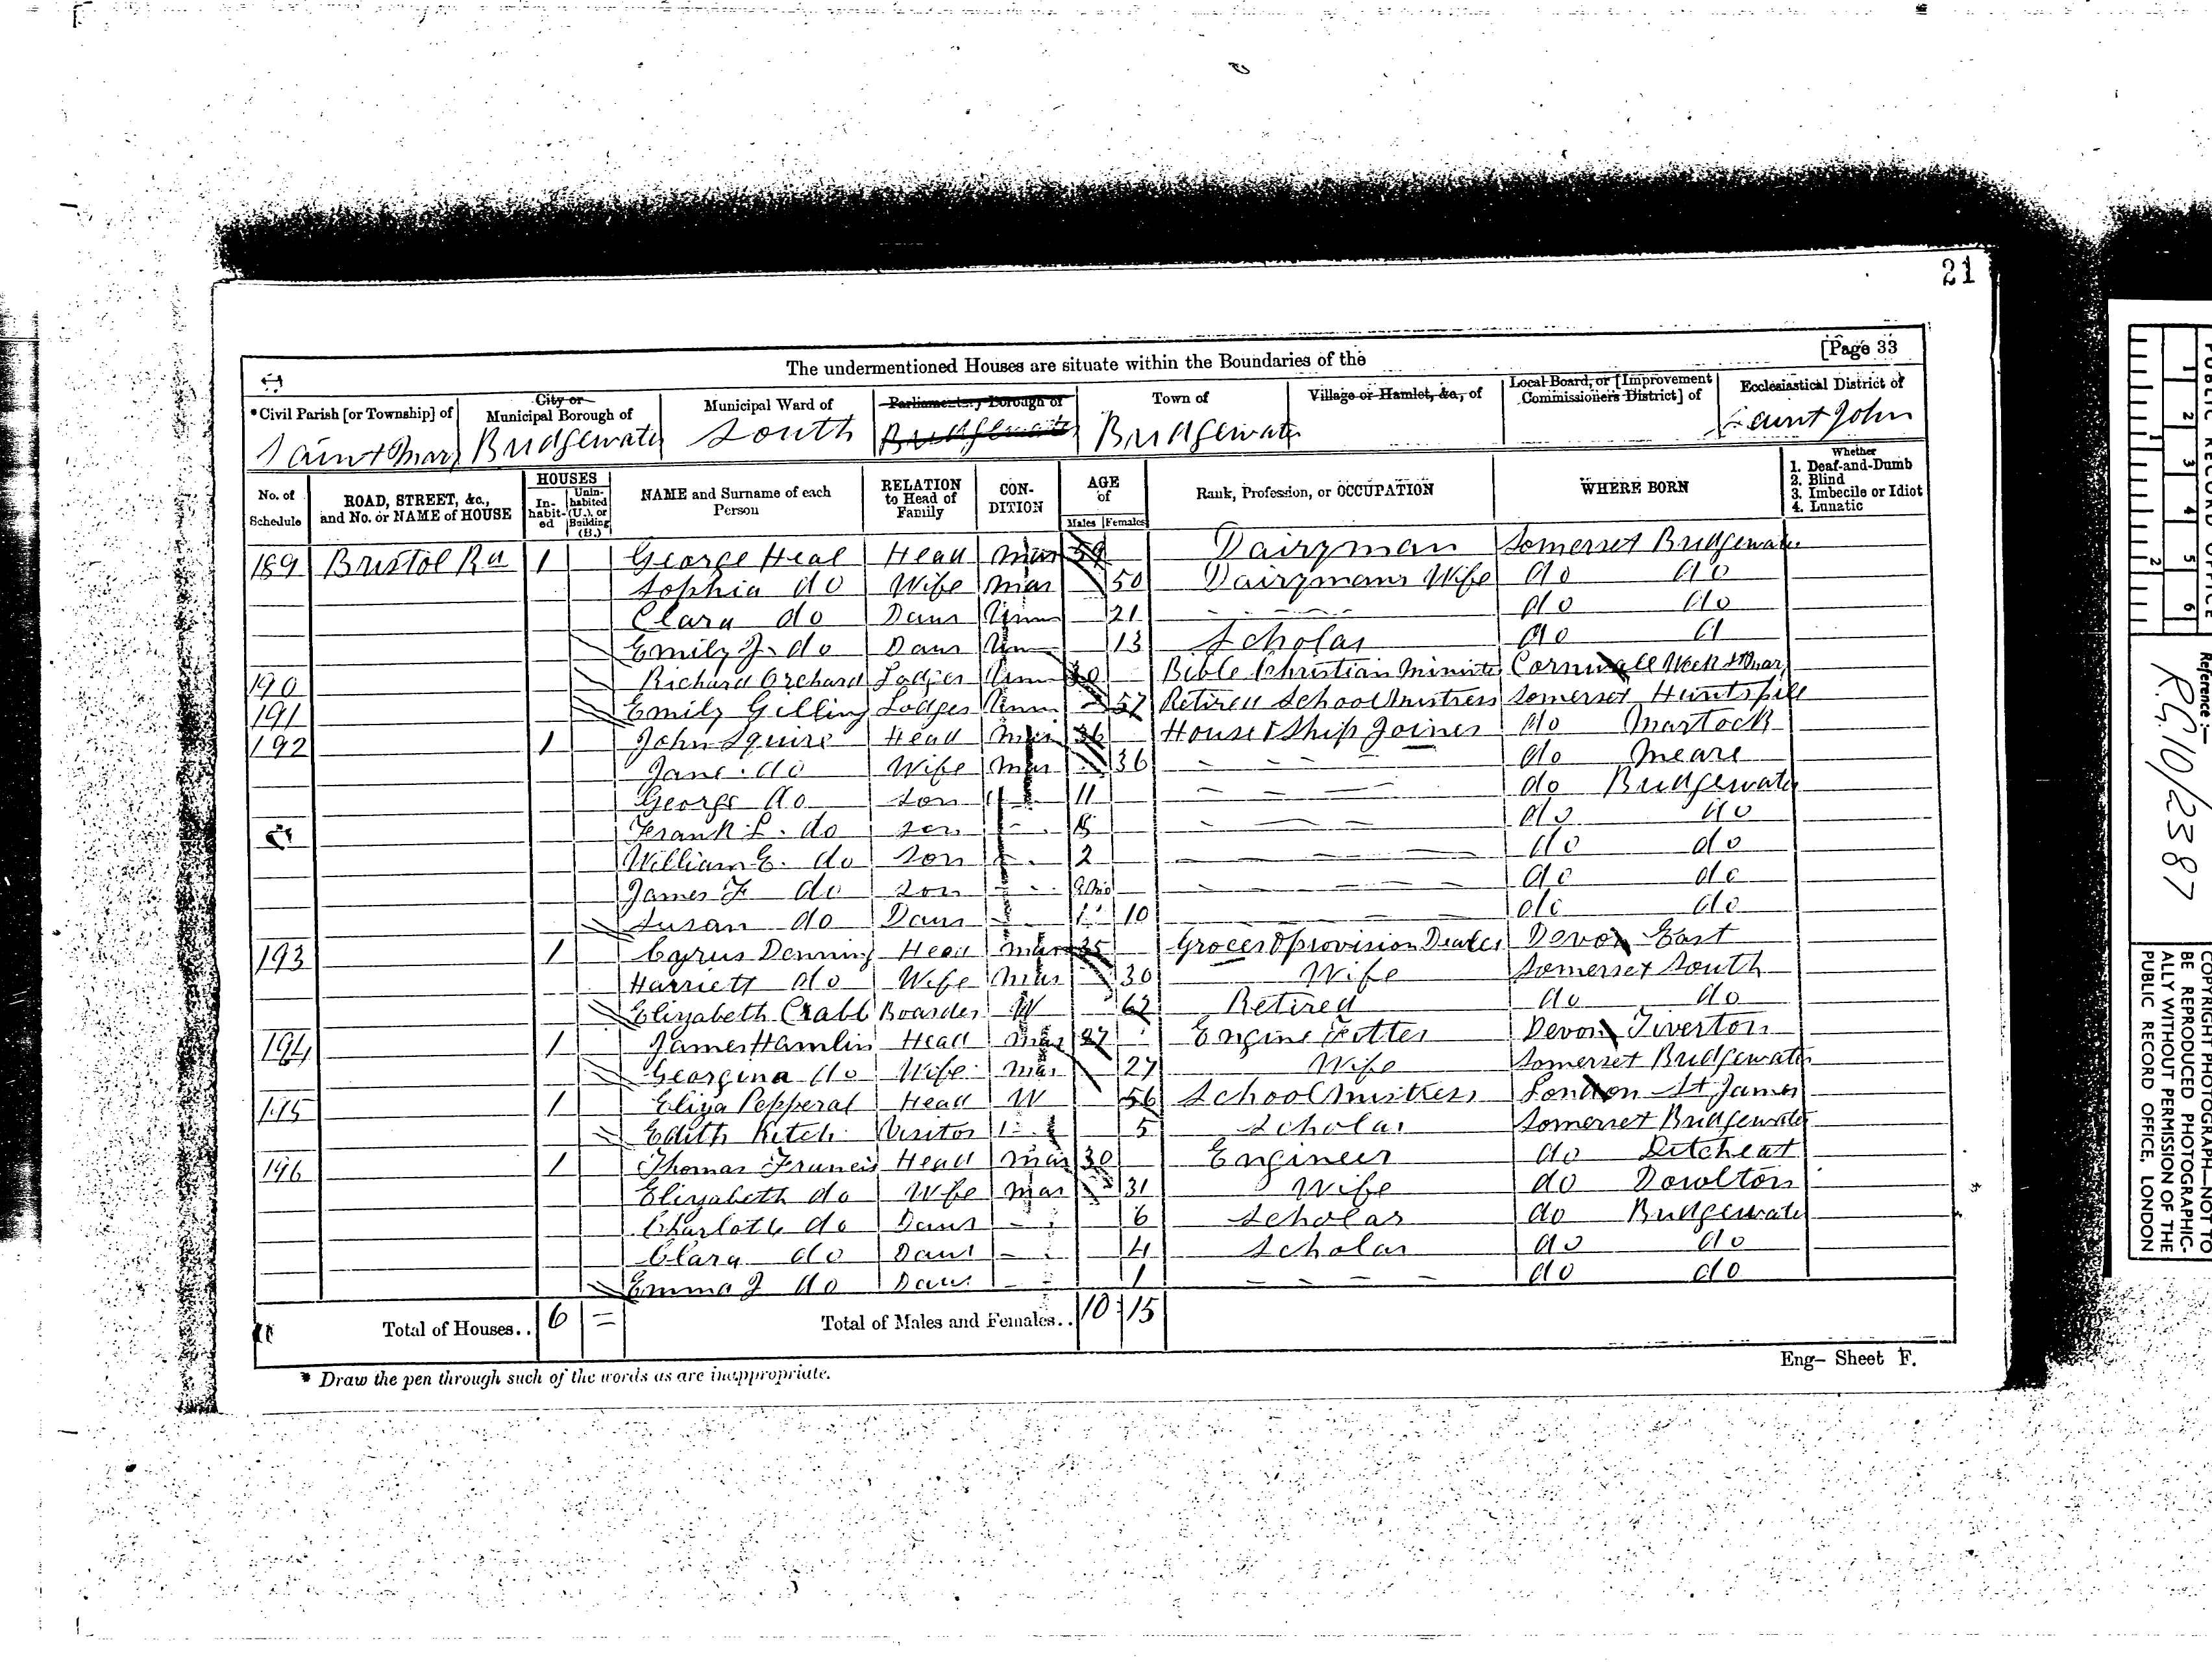 21
The undermentioned Houses are situate within the Boundaries of the [Page 33
*Civil Parish [or Township] of City or Municipal Borough of Municipal Ward of Parliamentary Borough of Town of Village or Hamlet, &c., of Local Board, or [Improvement Commissioners District] of Ecclesiastical District of
Saint Mary Bridgewater South Bridgewater Bridgewater Saint John
No. of Schedule ROAD, STREET, &c., and No. or NAME of HOUSE HOUSES In-habit-ed Unin-habited (U.), or Building (B.) NAME and Surname of each Person RELATION to Head of Family CON-DITION AGE of Males Females Rank, Profession, or OCCUPATION WHERE BORN Whether 1. Deaf-and-Dumb 2. Blind 3. Imbecile or Idiot 4. Lunatic
189 Bristol Rd 1 George Heal Head Mar 59 Dairyman Somerset Bridgewater
Sophia do Wife Mar 50 Dairymans Wife do do
Clara do Daur Unm 21 do do
Emily J. do Daur Unm 13 Scholar do d
190 Richard Orchard Lodger Unm 30 Bible Christian Minister Cornwall Week St Mary
191 Emily Gilling Lodger Unm 57 Retired School Mistress Somerset Huntspill
192 1 John Squire Head Mar 36 House & Ship Joiner do Martock
Jane do Wife Mar 36 do Meare
George do Son 11 do Bridgewater
Frank L. do Son do do
William E. do Son 2 do do
James F do Son Mo do do
Susan do Daur 10 do do
193 1 Cyrus Denning Head Mar 35 Grocer & Provision Dealer Devon East
Harriett do Wife Mar 30 Wife Somerset South
Elizabeth Crabb Boarder W 62 Retired do do
194 1 James Hamlin Head Mar 27 Engine Fitter Devon Tiverton
Georgina do Wife Mar 27 Wife Somerset Bridgewater
195 1 Eliza Pepperal Head W 56 School Mistress London St James
Edith Kitch Visitor 5 Scholar Somerset Bridgewater
196 1 Thomas Francis Head Mar 30 Engineer do Ditcheat
Elizabeth do Wife Mar 31 Wife do Dowlton
Charlotte do Daur 6 Scholar do Bridgewater
Clara do Daur 4 Scholar do do
Emma J do Daur 1 do do
Total of Houses.. 6 = Total of Males and Females.. 10 15
* Draw the pen through such of the words as are inappropriate.
Eng- Sheet F.
PUBLIC RECORD OFFICE
1 2 3 4 5 6
1 2
Reference:-
R.G.10/2387
COPYRIGHT PHOTOGRAPH—NOT TO
BE REPRODUCED PHOTOGRAPHIC-
ALLY WITHOUT PERMISSION OF THE
PUBLIC RECORD OFFICE, LONDON